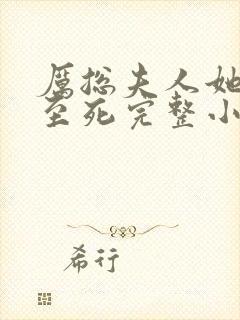 厲总夫人她
至死完整小
希行